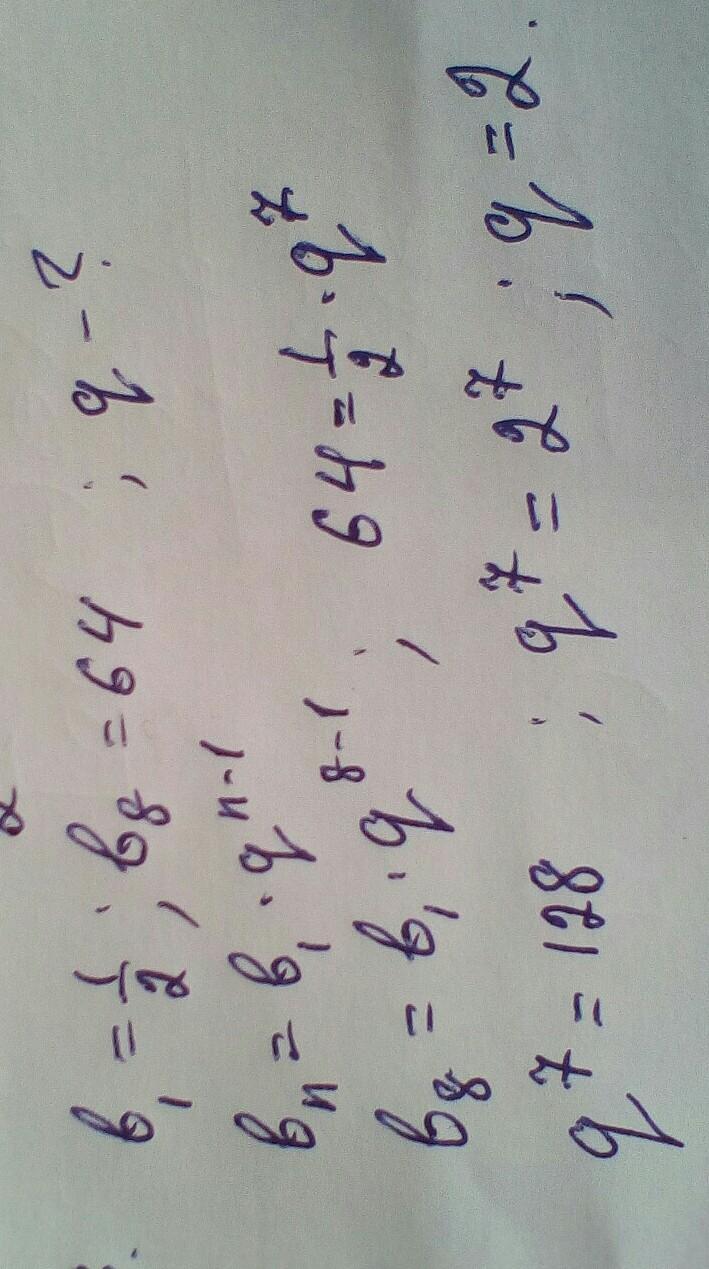 b₁ = 1/2 ; b₈ = 64 ; q - ?
bₙ = b₁ · qⁿ⁻¹
b₈ = b₁ · q⁸⁻¹ ; 64 = 1/2 · q⁷
q⁷ = 128 ; q⁷ = 2⁷ ; q = 2.